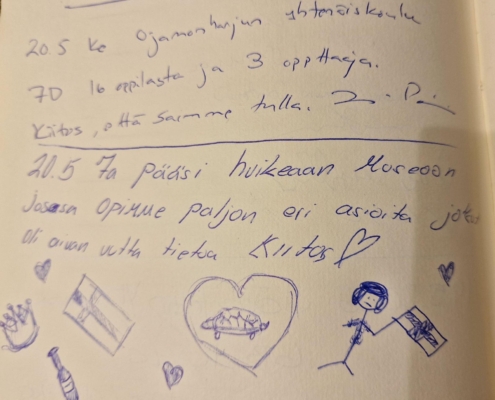 20.5 ke Ojamonharjun yhtenäiskoulu
7D 16 oppilasta ja 3 opettaja.
Kiitos, että saimme tulla.
20.5 7a pääsi huikeaan Museoon
jossa opimme paljon eri asioita jotka
oli aivan uutta tietoa Kiitos